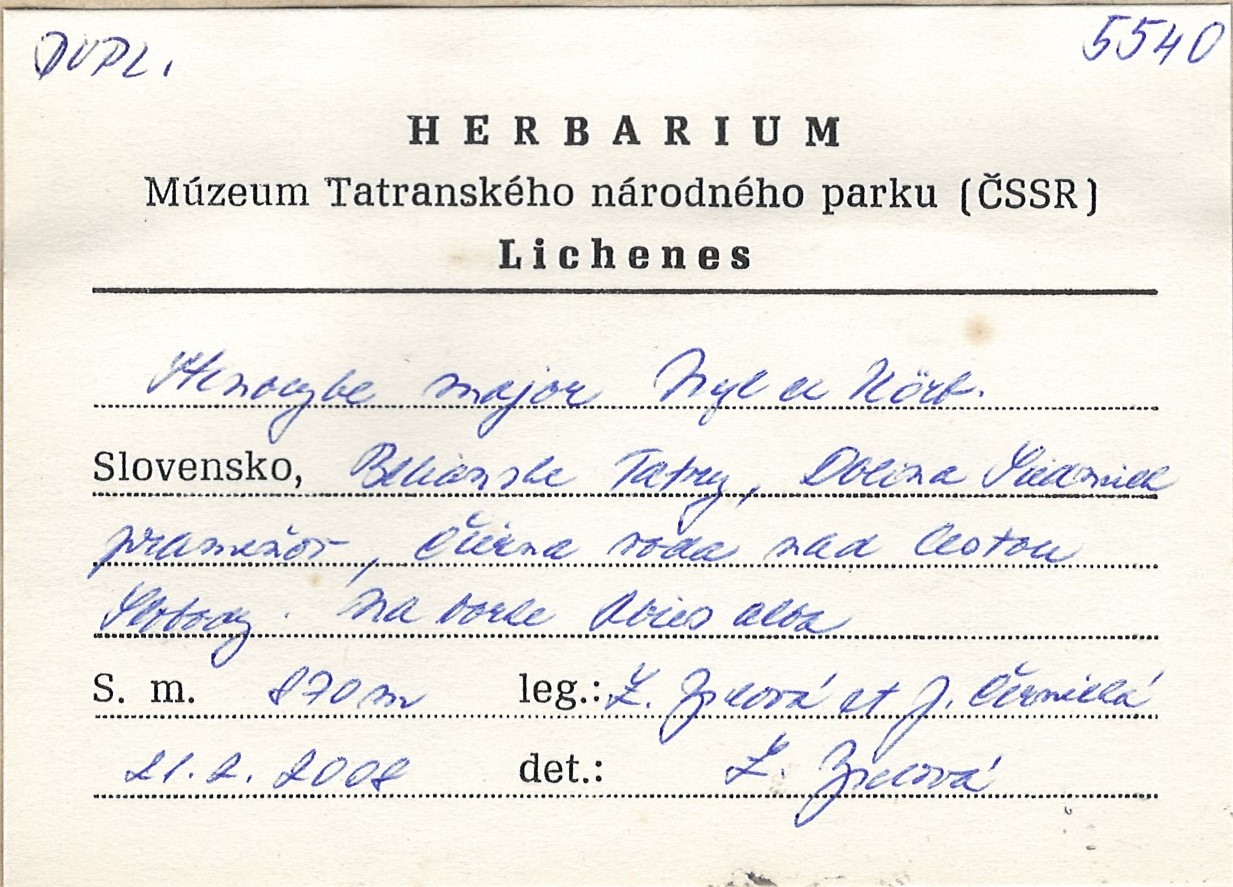 DUPL. 5540
HERBARIUM
Múzeum Tatranského národného parku (ČSSR)
Lichenes
Stenocybe major Nyl ex Körb.
Slovensko, Belianske Tatry, Dolina Siedmich
prameňov, Čierna voda nad Cestou
Slobody. Na borke Abies alba
S. m. 870 m leg.: Z. et J.
21. 2. 2008 det.: Z.